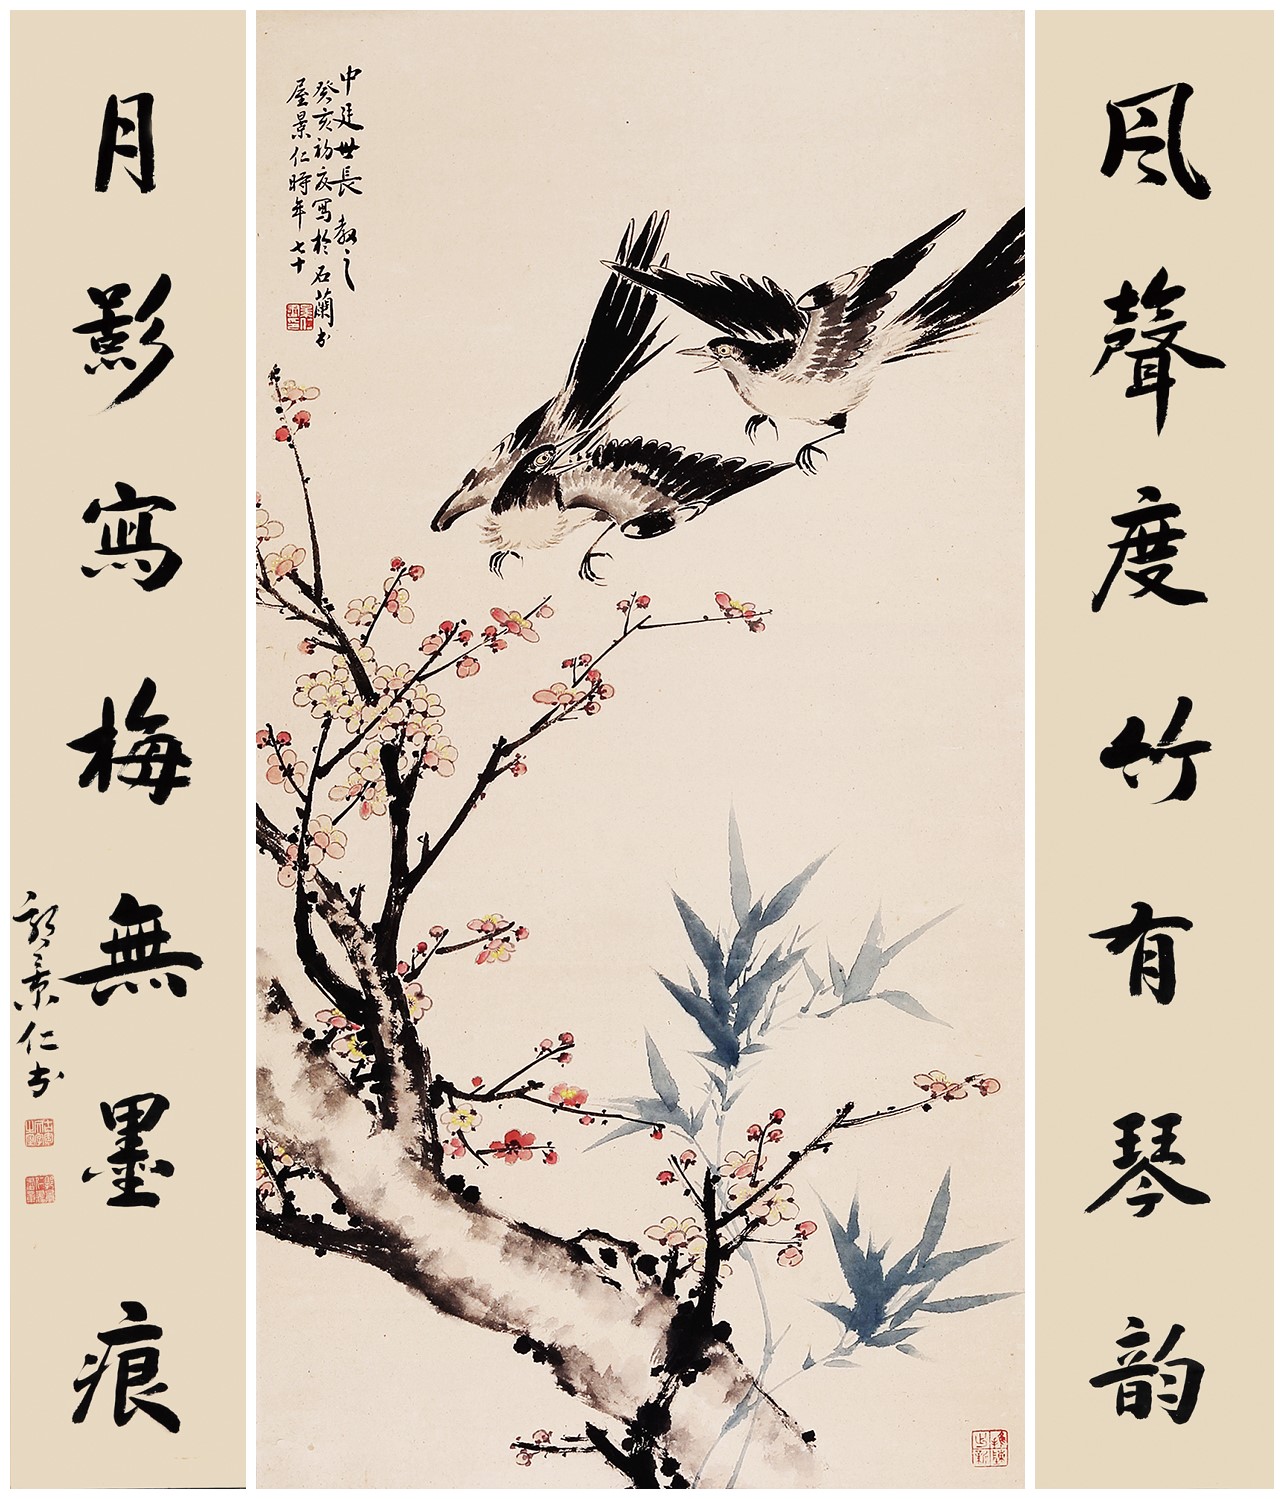 风聲度竹有琴韵
中廷世長教之
癸亥初夏寫於石蘭书
屋景仁時年七十
月影寫梅無墨痕
郭景仁书